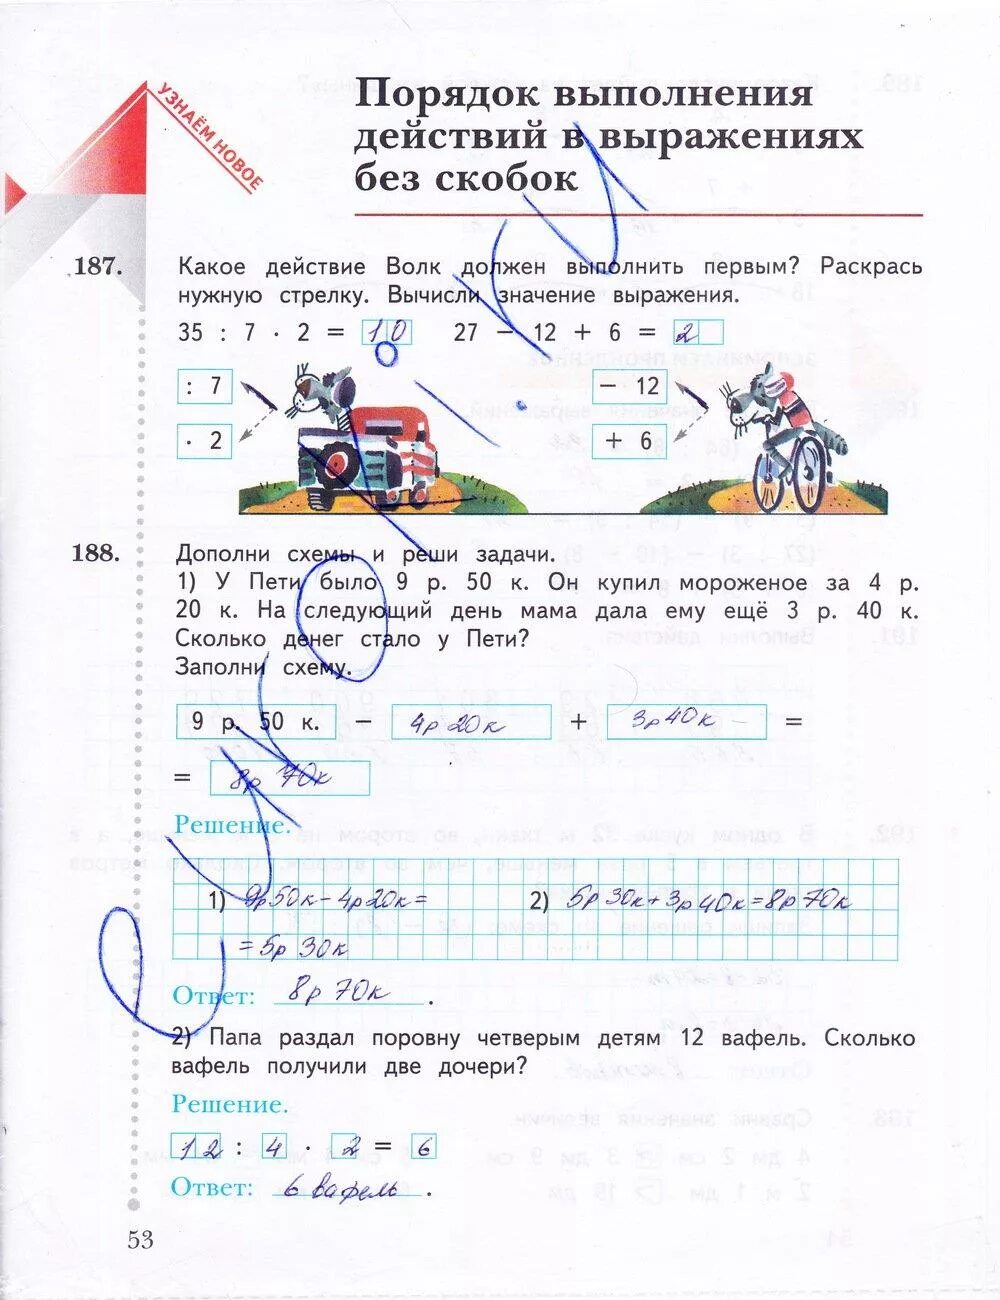 УЗНАЁМ НОВОЕ
Порядок выполнения
действий в выражениях
без скобок
187. Какое действие Волк должен выполнить первым? Раскрась
нужную стрелку. Вычисли значение выражения.
35 : 7 · 2 = 10 27 − 12 + 6 = 2
: 7
· 2
− 12
+ 6
188. Дополни схемы и реши задачи.
1) У Пети было 9 р. 50 к. Он купил мороженое за 4 р.
20 к. На следующий день мама дала ему ещё 3 р. 40 к.
Сколько денег стало у Пети?
Заполни схему.
9 р. 50 к. − 4р 20к + 3р 40к =
= 8р 70к
Решение.
1) 9р 50к − 4р 20к = 2) 5р 30к + 3р 40к = 8р 70к
= 5р 30к
Ответ: 8р 70к .
2) Папа раздал поровну четверым детям 12 вафель. Сколько
вафель получили две дочери?
Решение.
12 : 4 · 2 = 6
Ответ: 6 вафель .
53